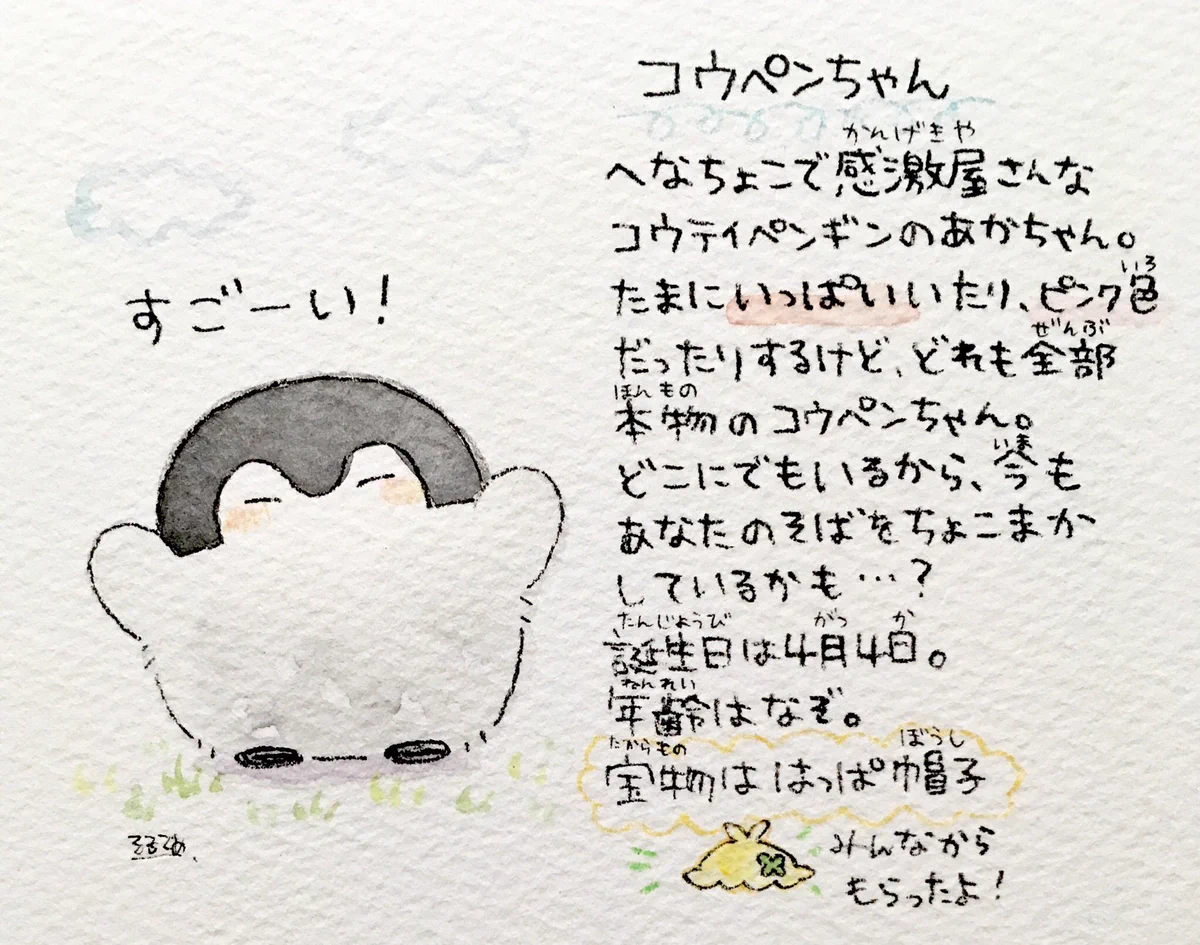 すごーい!
るるてあ
コウペンちゃん
かんげきや
へなちょこで感激屋さんな
コウテイペンギンのあかちゃん。
いろ
たまにいっぱいいたり、ピンク色
ぜんぶ
だったりするけど、どれも全部
ほんもの
本物のコウペンちゃん。
いま
どこにでもいるから、今も
あなたのそばをちょこまか
しているかも…?
たんじょうび がつ か
誕生日は4月4日。
ねんれい
年齢はなぞ。
たからもの ぼうし
宝物は はっぱ帽子
みんなから
もらったよ!